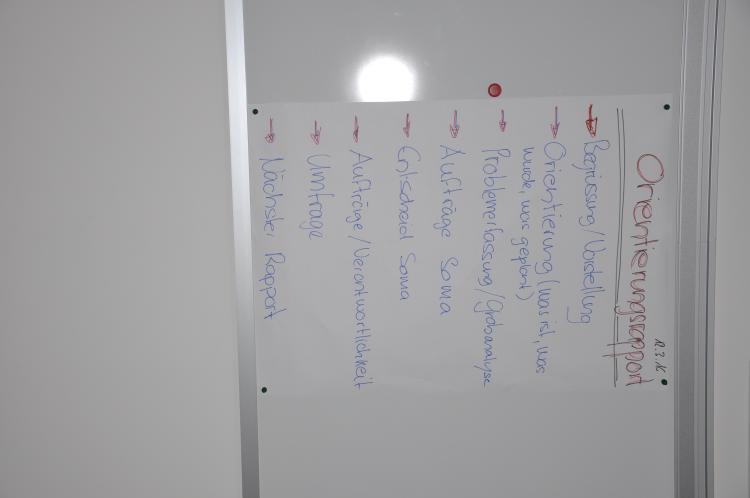 Orientierungsrapport
12.3.16
→ Begrüssung/Vorstellung
→ Orientierung (was ist, was
wurde, was geplant)
→ Problemerfassung/Grobanalyse
→ Aufträge Soma
→ Entscheid Soma
→ Aufträge/Verantwortlichkeit
→ Umfrage
→ Nächster Rapport